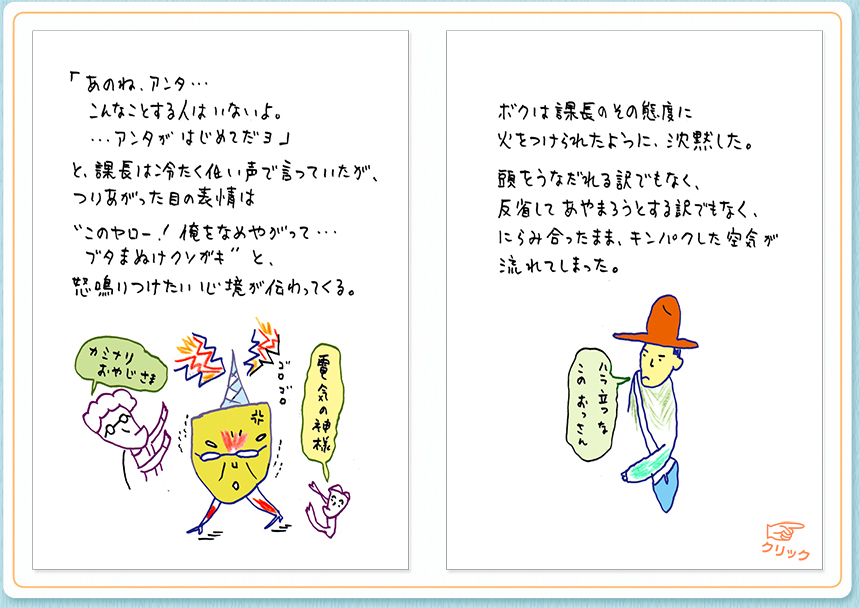 「あのね、アンタ…
こんなことする人はいないよ。
…アンタが はじめてだヨ」
と、課長は冷たく低い声で言っていたが、
つりあがった目の表情は
“このヤロー！俺をなめやがって…
ブタまぬけクソガキ”と、
怒鳴りつけたい心境が伝わってくる。
カミナリ
おやじさま
ゴロゴロ
電気の神様
ボクは課長のその態度に
火をつけられたように、沈黙した。
頭をうなだれる訳でもなく、
反省してあやまろうとする訳でもなく、
にらみ合ったまま、キンパクした空気が
流れてしまった。
ハラ立つな
このおっさん
クリック